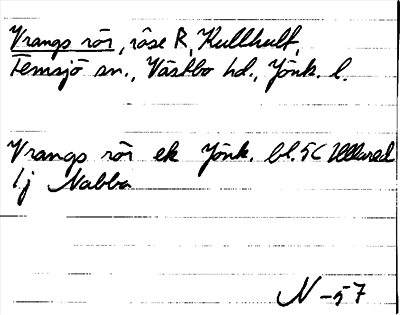 Vrangs rör, röse R, Kullhult,
Femsjö sn., Västbo hd., Jönk. l.
Vrangs rör ek Jönk. bl. 5C Ullared
1j Nabba
N-57